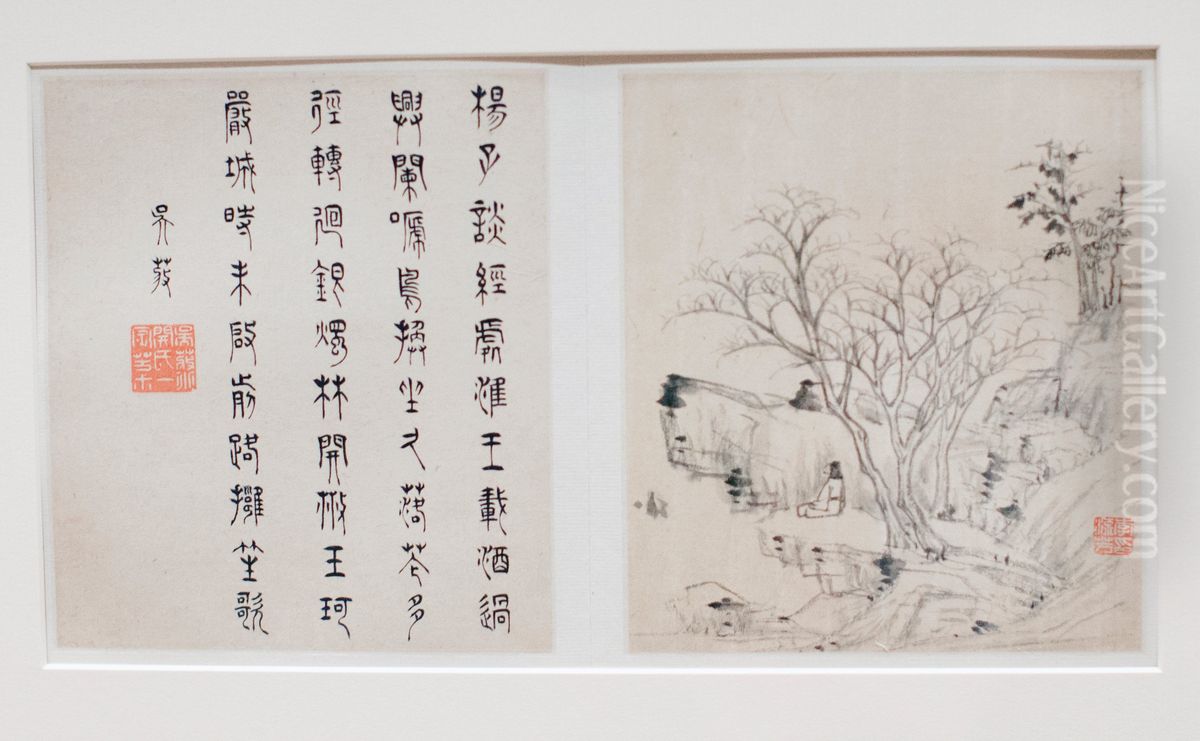 楊子談經處淮王載酒過
興闌嗁鳥換坐久落花多
徑轉迴銀燭林開散玉珂
嚴城時未啟前路擁笙歌
吳荔
NiceArtGallery.com